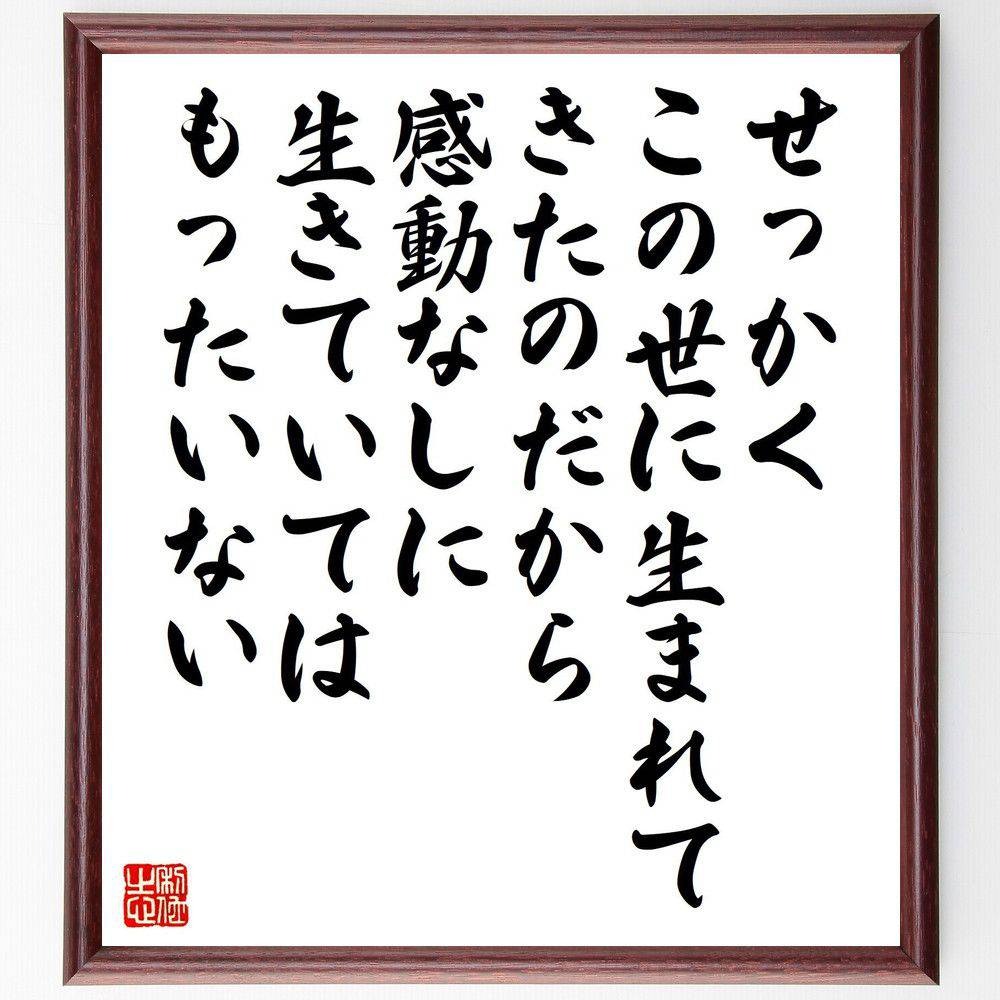 せっかく
この世に生まれて
きたのだから
感動なしに
生きていては
もったいない